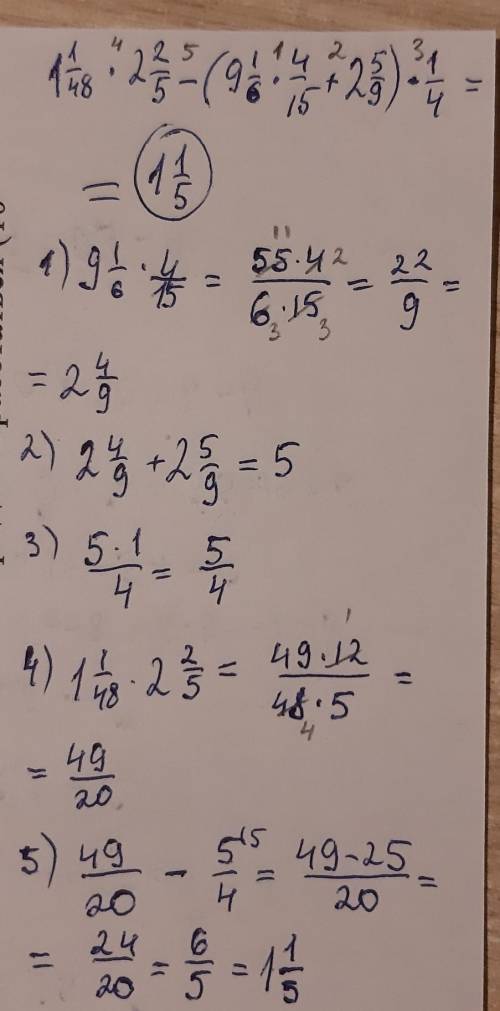 1 1/48 · 2 2/5 - (9 1/6 · 4/15 + 2 5/9) · 1/4 =
= 1 1/5
1) 9 1/6 · 4/15 = 55·4/6·15 = 22/9 =
= 2 4/9
2) 2 4/9 + 2 5/9 = 5
3) 5·1/4 = 5/4
4) 1 1/48 · 2 2/5 = 49·12/48·5 =
= 49/20
5) 49/20 - 5/4 = 49-25/20 =
= 24/20 = 6/5 = 1 1/5